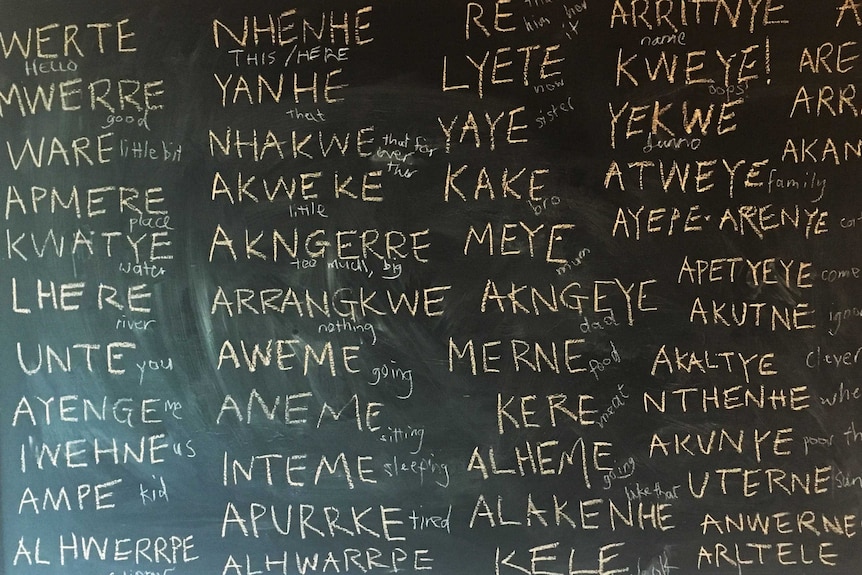 WERTE
Hello
MWERRE
good
WARE little bit
APMERE
place
KWATYE
water
LHERE
river
UNTE you
AYENGE me
IWEHNE us
AMPE kid
ALHWERRPE
NHENHE
THIS / HERE
YANHE
that
NHAKWE that far
over
ther
AKWEKE
little
AKNGERRE
too much, big
ARRANGKWE
nothing
AWEME going
ANEME
sitting
INTEME sleeping
APURRKE tired
ALHWARRPE
RE
him
it
LYETE
now
YAYE sister
KAKE
bro
MEYE
mum
AKNGEYE
dad
MERNE food
KERE meat
ALHEME
going
ALAKENHE like that
KELE
ARRITNYE
name
KWEYE!
oops!
YEKWE
dunno
ATWEYE family
AYEPE-ARENYE
APETYEYE come
AKUTNE
AKALTYE clever
NTHENHE
AKUNYE poor
UTERNE sun
ANWERNE
ARLTELE
ARE
ARR
AKAN